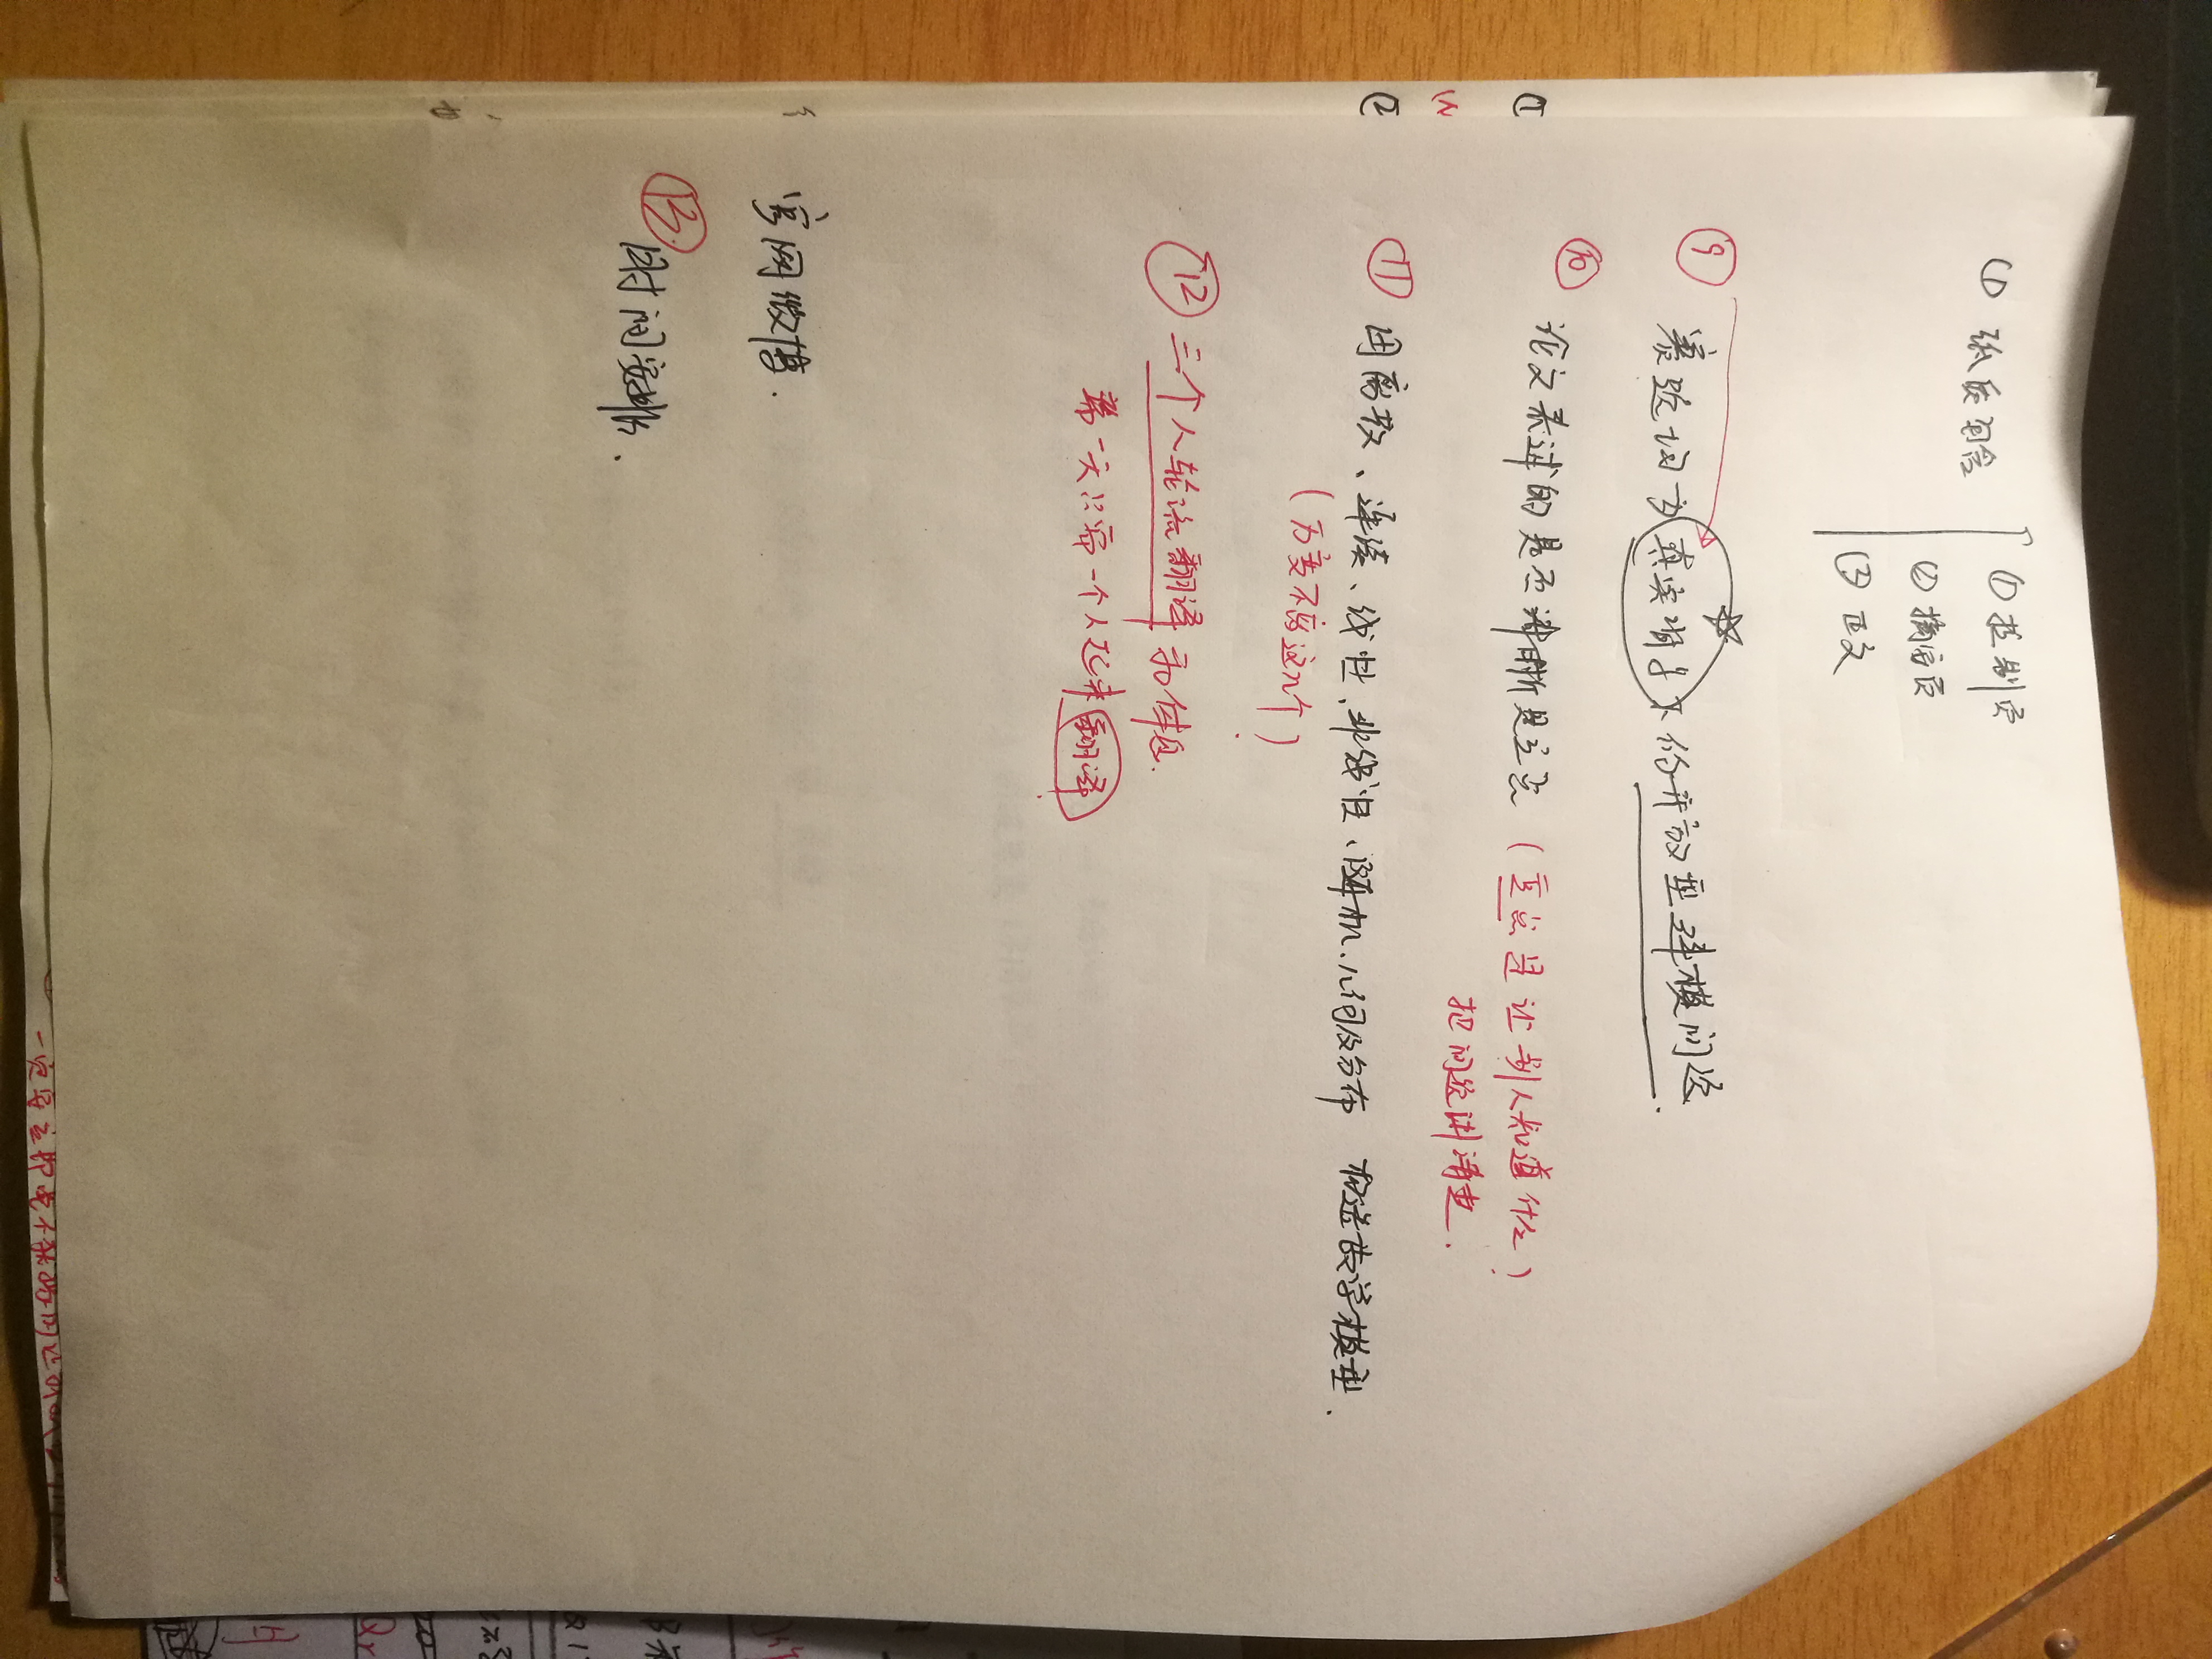 ① 纸质包含
① 控制页
② 摘要页
③ 正文
⑨ 赛题均为真实背景下的开放型建模问题.
⑩ 论文表述的是否清晰是重点 (重点是让别人知道什么)
把问题讲清楚.
⑪ 用离散、连续、线性、非线性、随机、几何及分布 构造数学模型.
(万变不离这几个)
⑫ 三个人轮流翻译和休息.
第一天只需一个人起来翻译.
官网微博.
⑬ 时间安排.
①
②